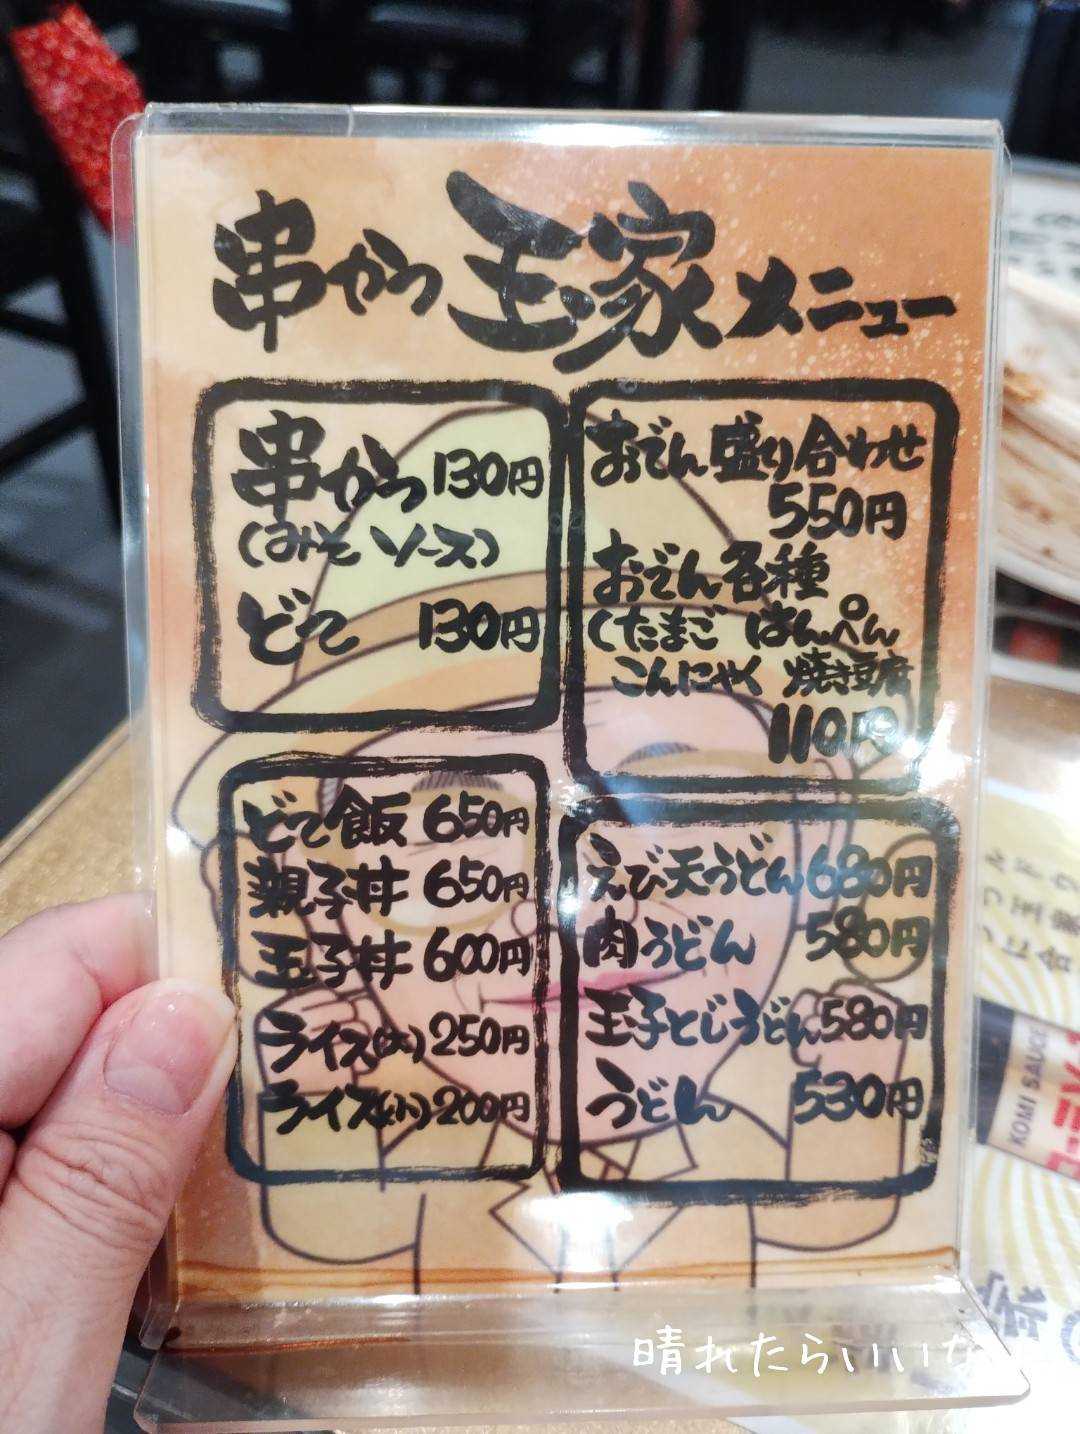 串かつ 玉家 メニュー
串かつ 130円
(みそ ソース)
どて 130円
おでん盛り合わせ
550円
おでん各種
(たまご はんぺん
こんにゃく 焼き豆腐
110円)
どて飯 650円
親子丼 650円
玉子丼 600円
ライス(大) 250円
ライス(小) 200円
えび天うどん 680円
肉うどん 580円
玉子とじうどん 580円
うどん 530円
KOMI SAUCE
晴れたらいいな